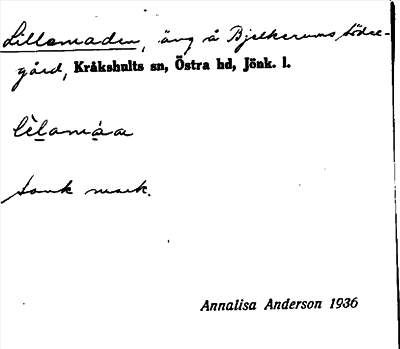 Lillamaden, äng å Bjelkerums södre-
gård, Kråkshults sn, Östra hd, Jönk. l.
lèlamáa
sank mark.
Annalisa Anderson 1936